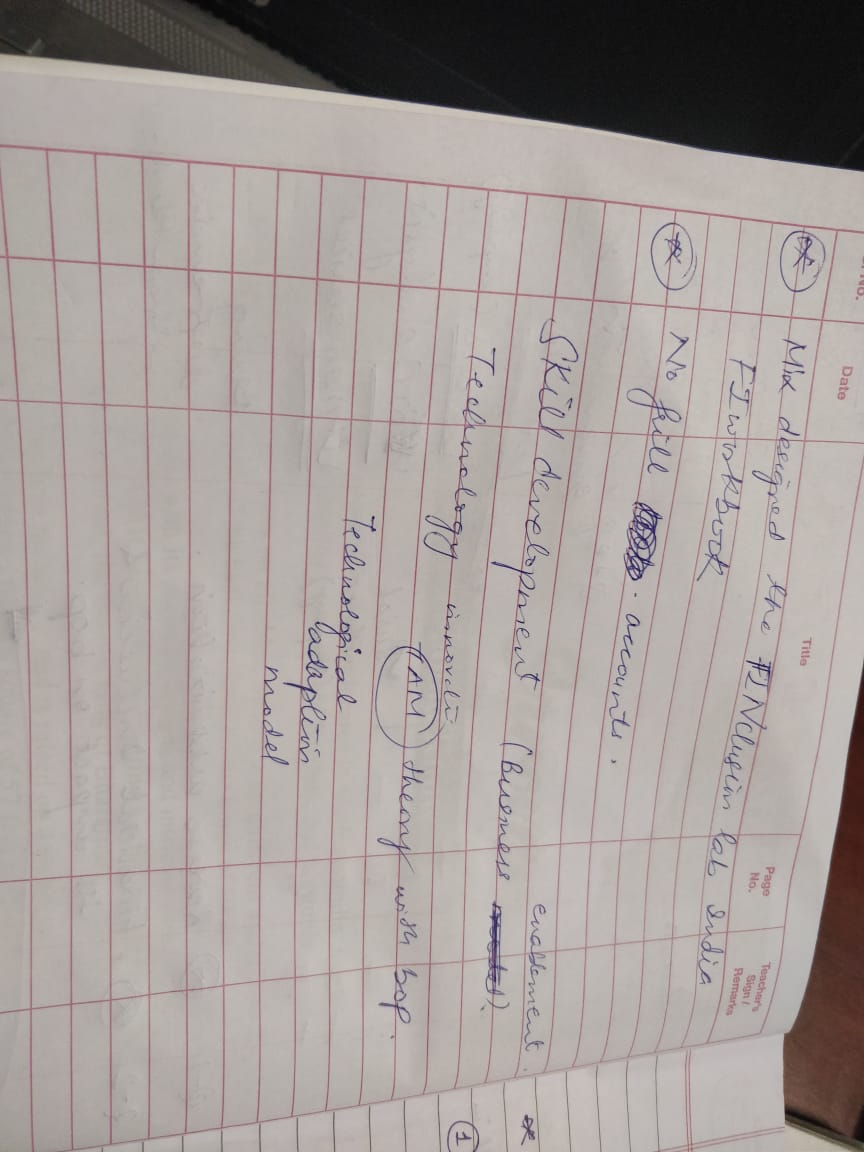 Sr. No. Date Title Page No. Teacher's Sign / Remarks
Mix designed the FINclusion lab India
FI workbook
No frill accounts.
Skill development (Business enablement).
Technology innovati
TAM theory with bop.
Technological
adaption
model
1